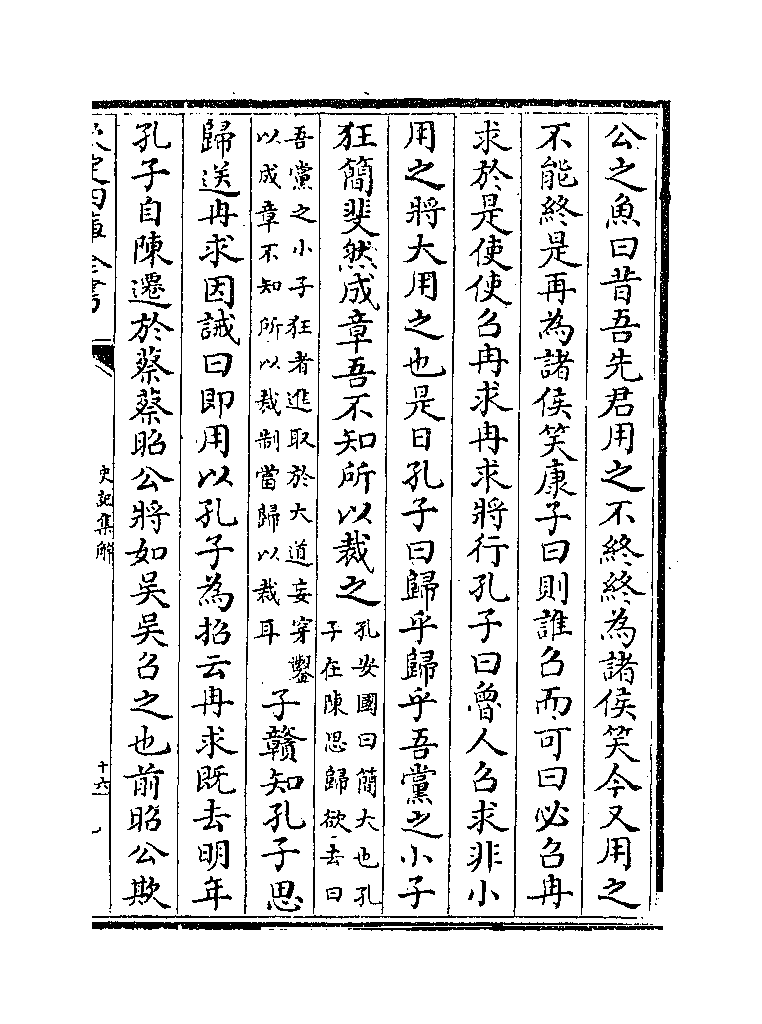 公之魚曰昔吾先君用之不終終為諸侯笑今又用之
不能終是再為諸侯笑康子曰則誰召而可曰必召冉
求於是使使召冉求冉求將行孔子曰魯人召求非小
用之將大用之也是日孔子曰歸乎歸乎吾黨之小子
狂簡斐然成章吾不知所以裁之
孔安國曰簡大也孔
子在陳思歸欲去曰
吾黨之小子狂者進取於大道妄穿鑿
以成章不知所以裁制當歸以裁耳
子贛知孔子思
歸送冉求因誡曰即用以孔子為招云冉求既去明年
孔子自陳遷於蔡蔡昭公將如吳吳召之也前昭公欺
欽定四庫全書
史記集解
十六